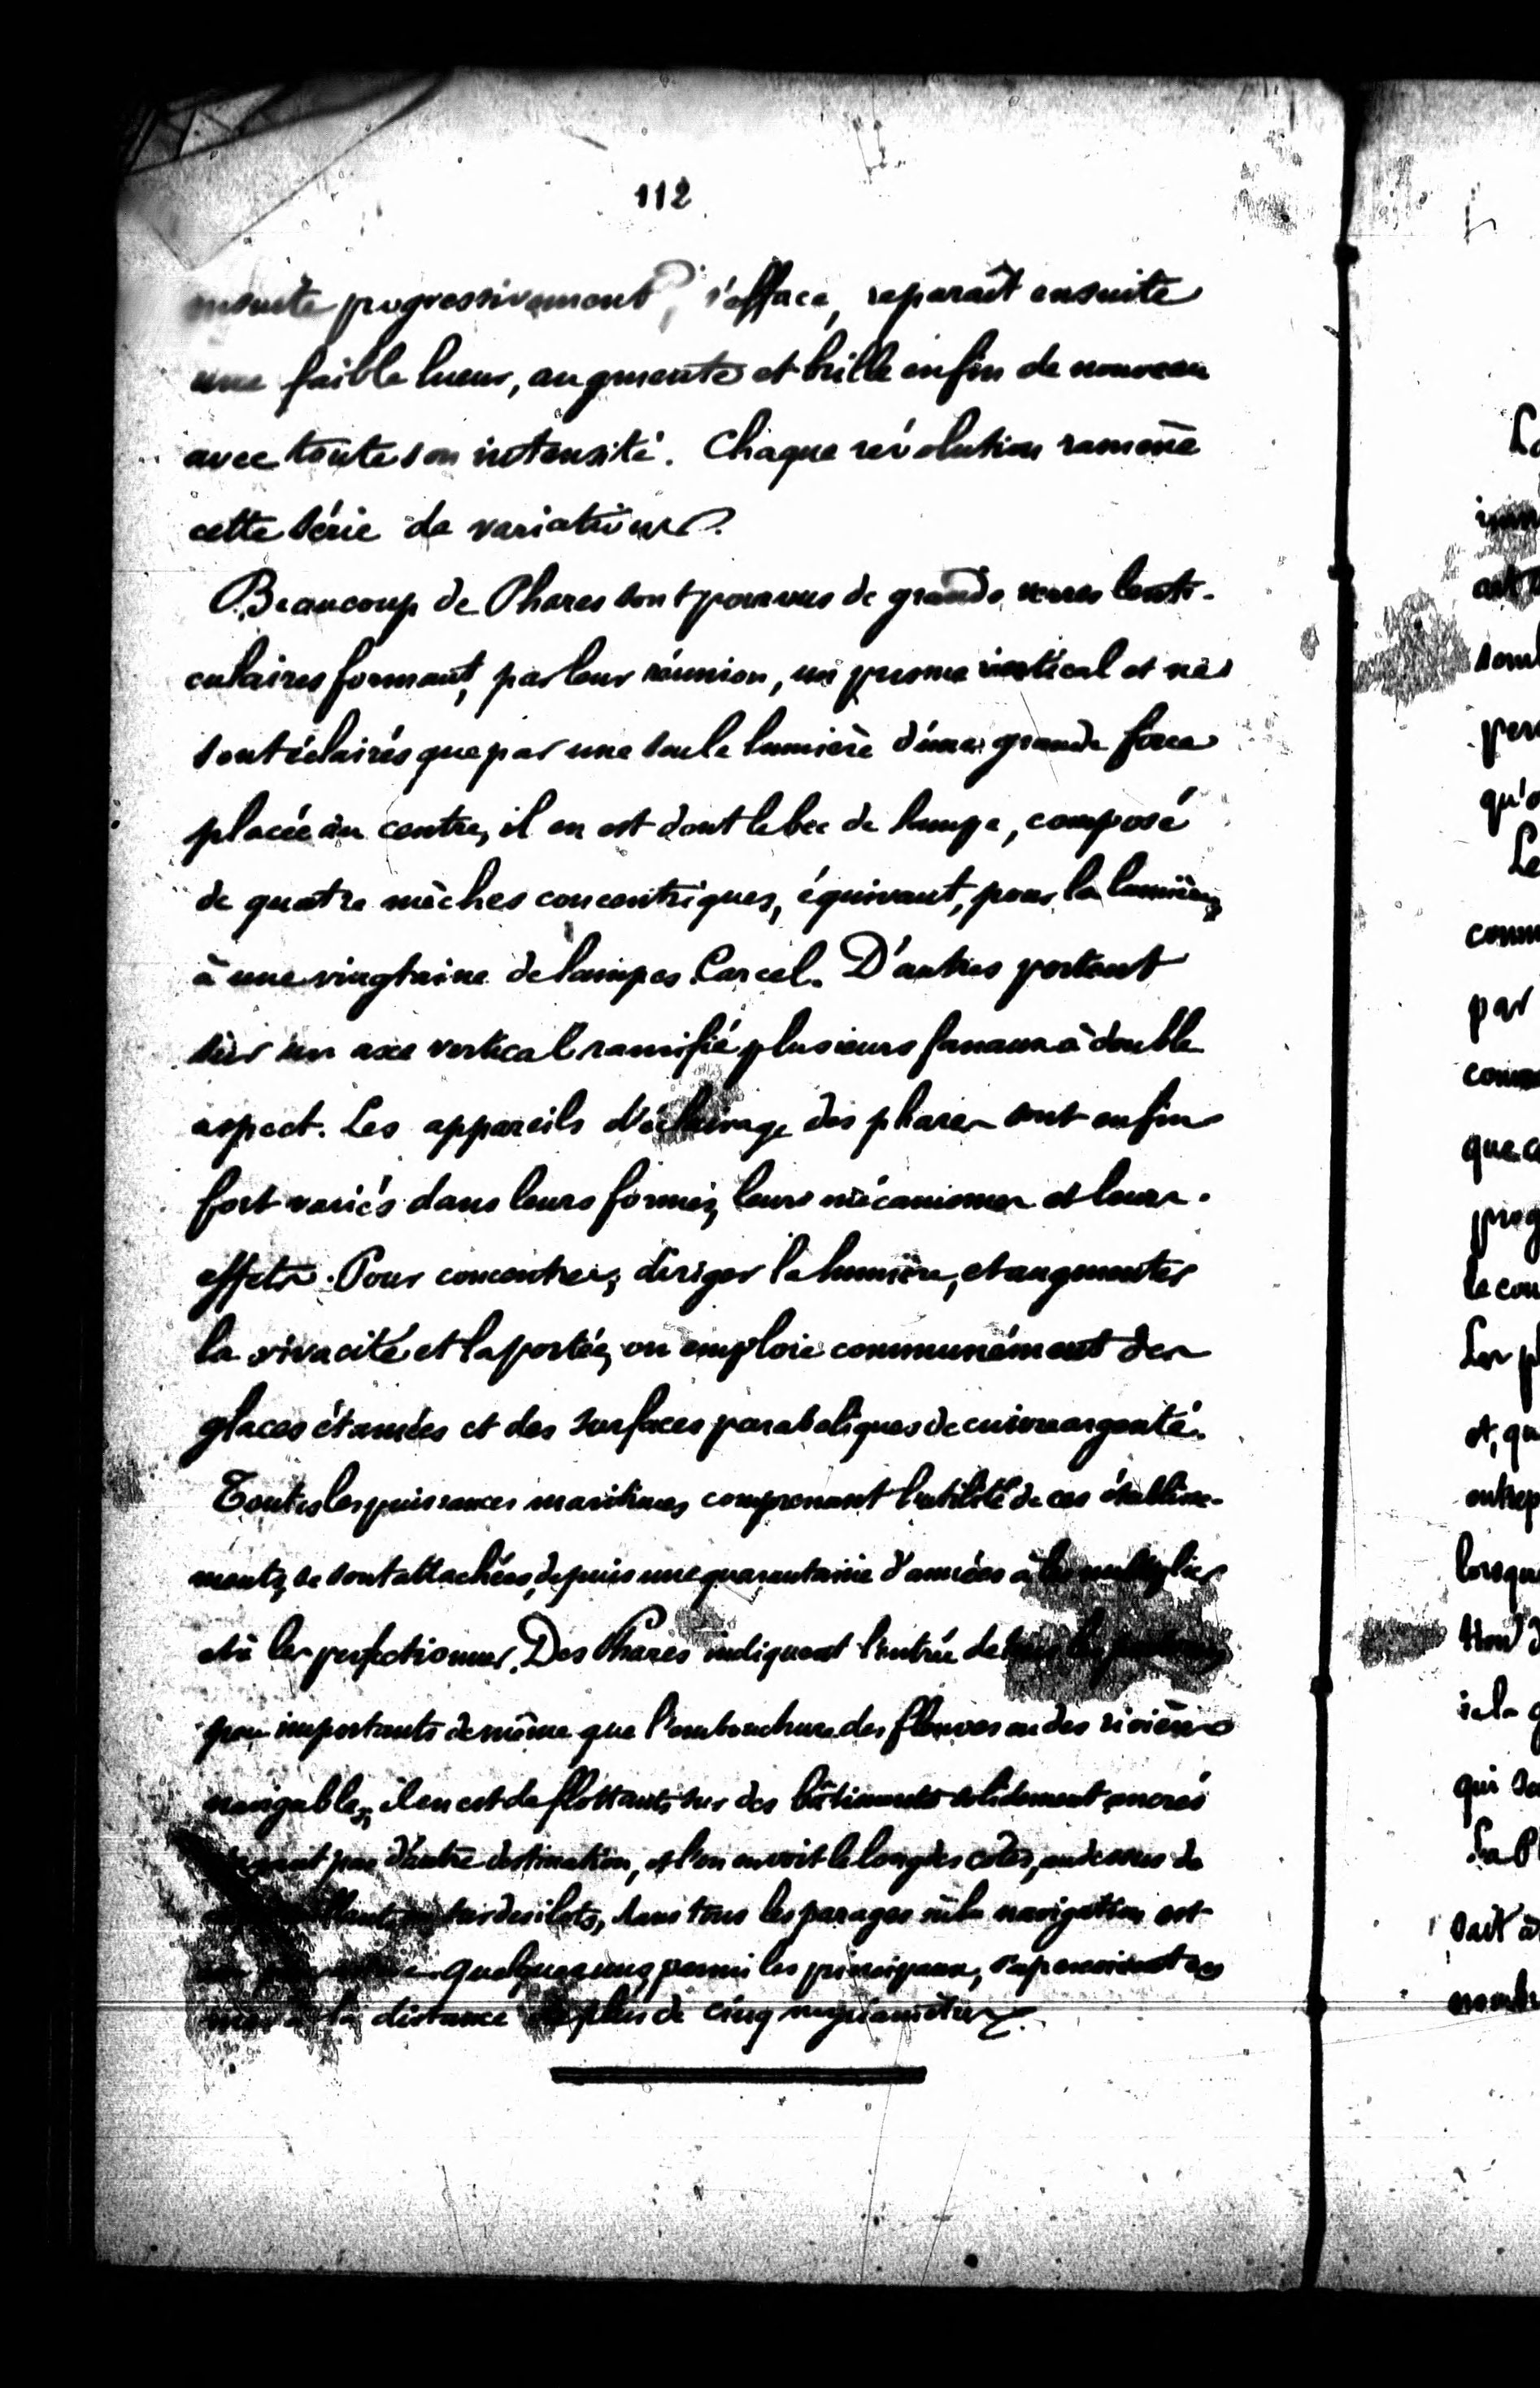 112
ensuite progressivement, s'efface, reparaît ensuite
une faible lueur, augmente et brille enfin de nouveau
avec toute son intensité. Chaque révolution ramène
cette série de variations.
Beaucoup de Phares sont pourvus de grands verres lenti-
culaires formant, par leur réunion, un prisme vertical et ne
sont éclairés que par une seule lumière d'une grande force
placée au centre, il en est dont le bec de lampe, composé
de quatre mèches concentriques, équivaut, pour la lumière,
à une vingtaine de lampes Carcel. D'autres portent
sur un axe vertical ramifié plusieurs fanaux à double
aspect. Les appareils d'éclairage des phares sont enfin
fort variés dans leurs formes, leurs mécanismes et leurs
effets. Pour concentrer, diriger la lumière, et augmenter
la vivacité et la portée, on emploie communément des
glaces étamées et des surfaces paraboliques de cuivre argenté.
Toutes les puissances maritimes, comprenant l'utilité de ces établisse-
ments, se sont attachées, depuis une quarantaine d'années à les multiplier
et à les perfectionner. Des Phares indiquent l'entrée de tous les
peu importants de même que l'embouchure des fleuves ou des rivières
navigables, il en est de flottants sur des bâtiments solidement ancrés
pas d'autre destination, et l'on en voit le long des côtes, au dessus de
sur des ilots, dans tous les parages où la navigation est
quelques uns, parmi les principaux, s'aperçoivent en
mer à la distance de plus de cinq myriamètres.
L
par
qui